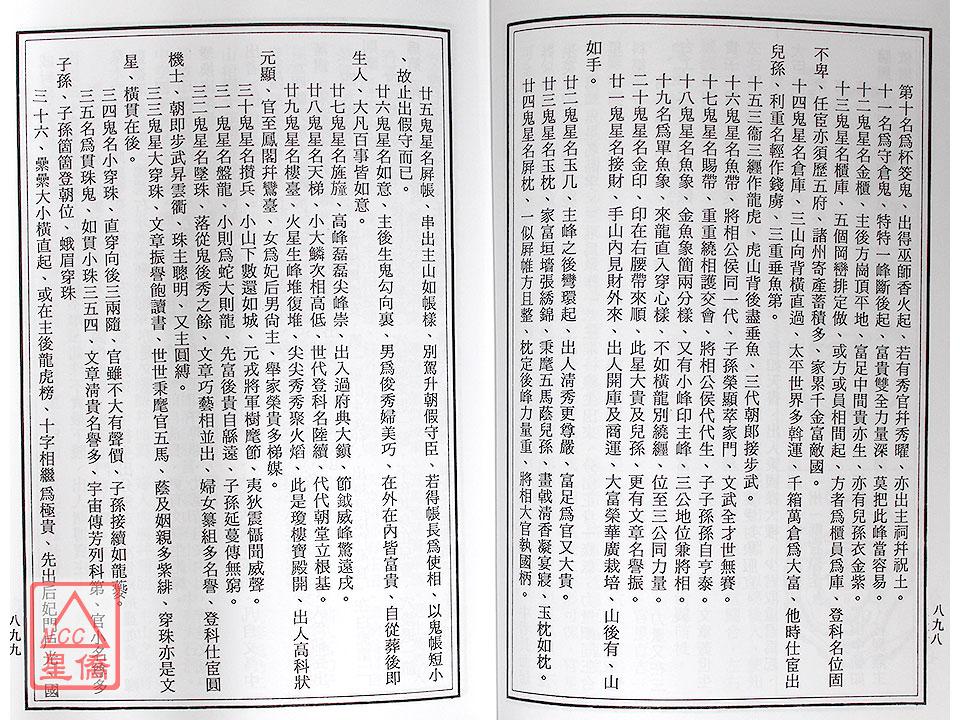 第十名爲杯筊鬼、出得巫師香火起、若有秀官幷秀曜、亦出主祠幷祝土。
十一名爲守倉鬼、特特一峰斷後起、富貴雙全力量深、莫把此峰當容易。
十二鬼星名金櫃、主後方崗頂平地、富足中間貴亦生、亦有兒孫衣金紫。
十三鬼星名櫃庫、五個岡巒排定做、或方或員相間起、方者爲櫃員爲庫、登科名位固
不卑、任宦亦須歷五府、諸州寄產蓄積多、家累千金富敵國。
十四鬼星名倉庫、三山向背橫直過、太平世界多斡運、千箱萬倉爲大富、他時仕宦出
兒孫、利重名輕作錢虜、三重垂魚第。
十五三衙三纒作龍虎、虎山背後盡垂魚、三代朝郎接步武。
十六鬼星名魚帶、將相公侯同一代、子孫榮顯萃家門、文武全才世無賽。
十七鬼星名賜帶、重重繞相護交會、將相公侯代代生、子子孫孫自亨泰。
十八鬼星名魚象、金魚象簡兩分樣、又有小峰印主峰、三公地位兼將相。
十九名爲單魚象、來龍直入穿心樣、不如橫龍別繞纒、位至三公同力量。
二十鬼星名金印、印在右腰帶來順、此星大貴及兒孫、更有文章名譽振。
廿一鬼星名接財、手山內見財外來、出人開庫及商運、大富榮華廣栽培、山後有、山
如手。
廿二鬼星名玉几、主峰之後彎環起、出人淸秀更尊嚴、富足爲官又大貴。
廿三鬼星名玉枕、家富垣墻張綉錦、秉麾五馬蔭兒孫、畫戟淸香凝宴寢、玉枕如枕。
廿四鬼星名屛枕、一似屛帷方且整、枕定後峰力量重、將相大官執國柄。
八九八
廿五鬼星名屛帳、串出主山如帳樣、別駕升朝假守臣、若得帳長爲使相、以鬼帳短小
、故止出假守而已。
廿六鬼星名如意、主後生鬼勾向裏、男爲俊秀婦美巧、在外在內皆富貴、自從葬後即
生人、大凡百事皆如意。
廿七鬼星名旌旗、高峰磊磊尖峰崇、出入過府典大鎭、節鉞威峰驚遠戌。
廿八鬼星名天梯、小大鱗次相高低、世代登科名陸續、代代朝堂立根基。
廿九鬼星名樓臺、火星生峰堆復堆、尖尖秀秀聚火焰、此是瓊樓寶殿開、出人高科狀
元顯、官至鳳閣幷鸞臺、女爲妃后男尙主、舉家榮貴多梯媒。
三十鬼星名攢兵、小山下數還如城、元戎將軍樹麾節、夷狄震懾聞威聲。
三一鬼星名盤龍、小則爲蛇大則龍、先富後貴自緜遠、子孫延蔓傳無窮。
三二鬼星名墜珠、落從鬼後秀之餘、文章巧藝相並出、婦女纂組多名譽、登科仕宦圓
機士、朝即步武昇雲衢、珠主聰明、又主圓縛。
三三鬼星大穿珠、文章振譽飽讀書、世世秉麾官五馬、蔭及姻親多紫緋、穿珠亦是文
星、橫貫在後。
三四鬼名小穿珠、直穿向後三兩隨、官雖不大有聲價、子孫接續如龍藜。
三五名爲貫珠鬼、如貫小珠三五四、文章淸貴名譽多、宇宙傳芳列科第、官小名爲多
子孫、子孫箇箇登朝位、蛾眉穿珠
三十六、纍纍大小橫直起、或在主後龍虎榜、十字相繼爲極貴、先出后妃門光國
八九九
NCC
星僑